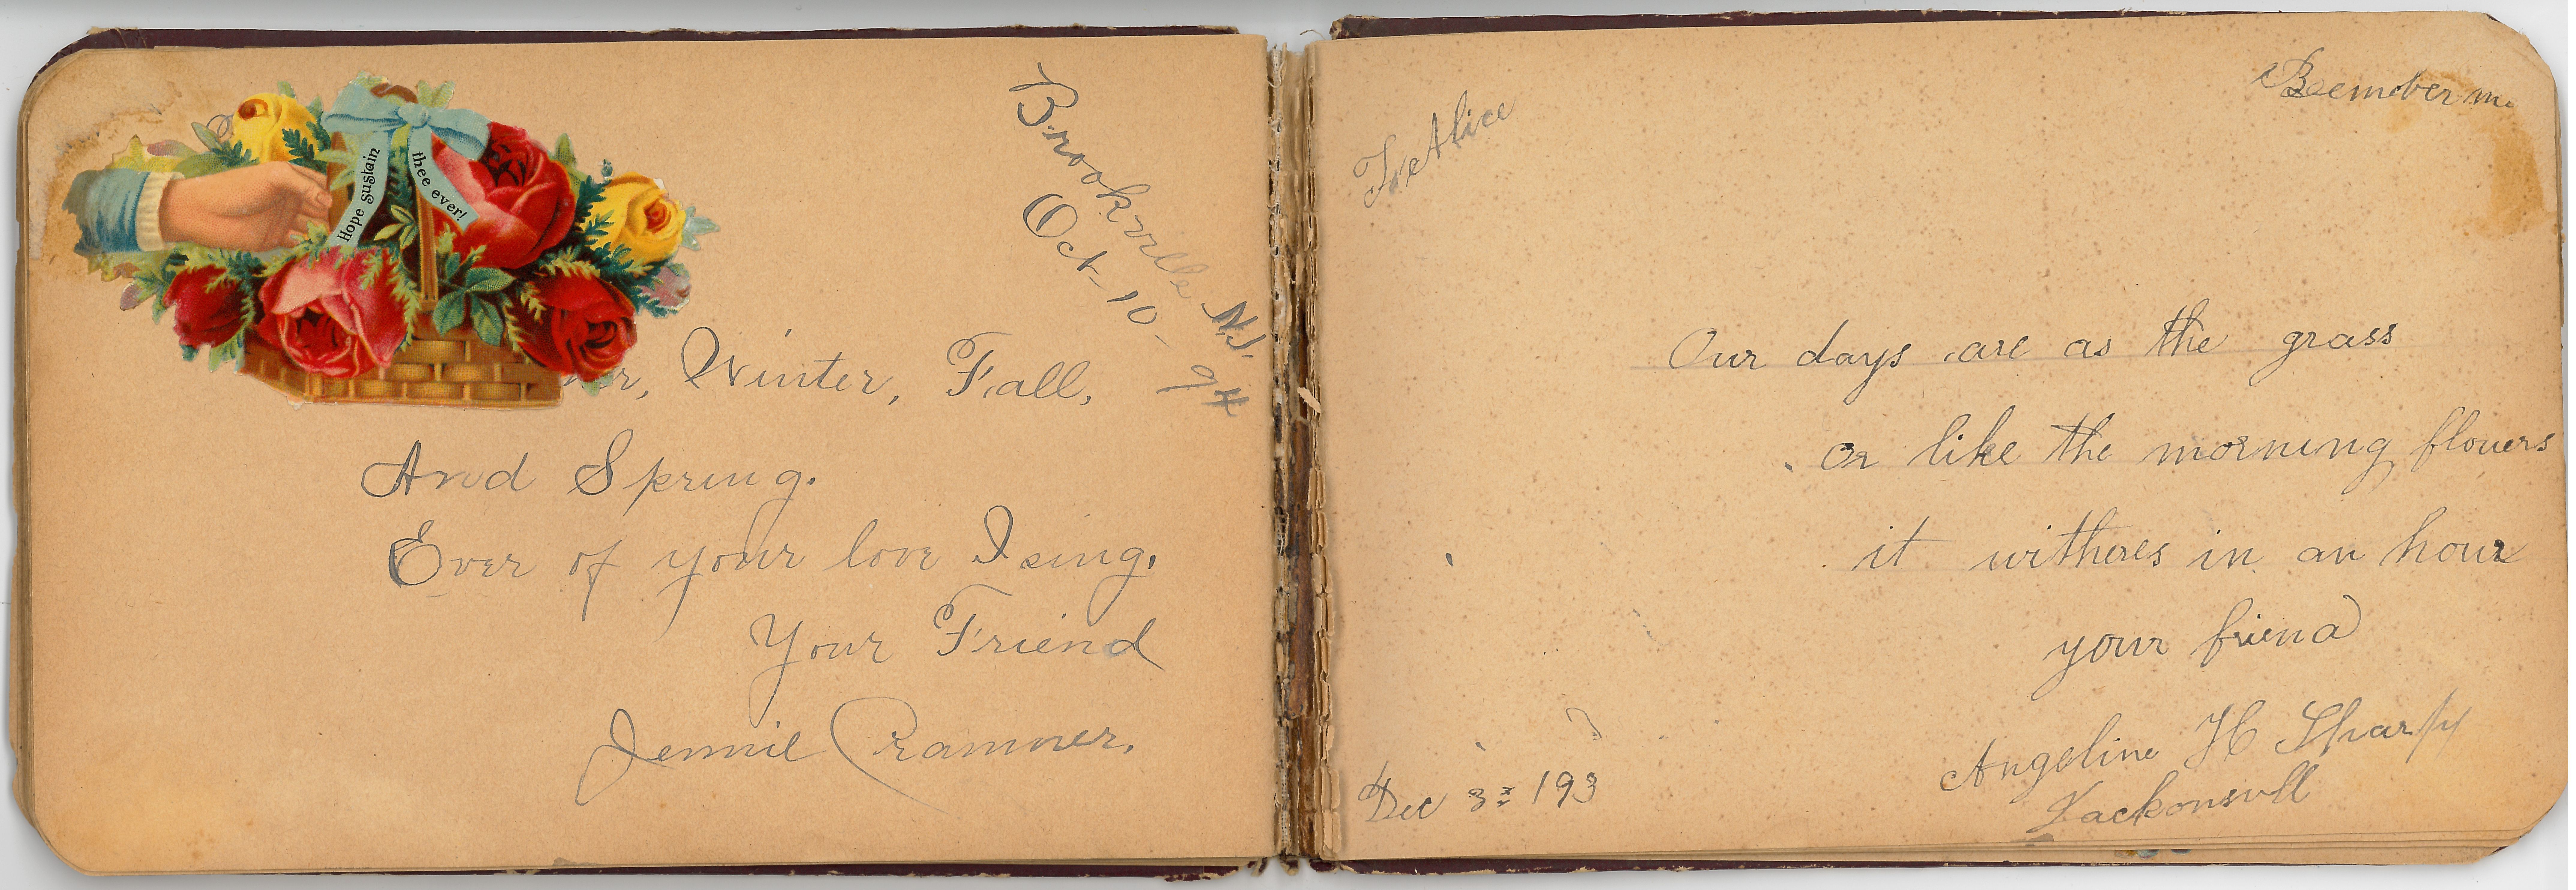 Hope sustain
thee ever!
Brookville N.J.
Oct-10-94
r, Winter, Fall,
And Spring.
Ever of your love I sing.
Your Friend
Jennie Cramner.
To Alice
Our days are as the grass
or like the morning flowers
it witheres in an hour
your friend
Angeline H
Dec 3 193